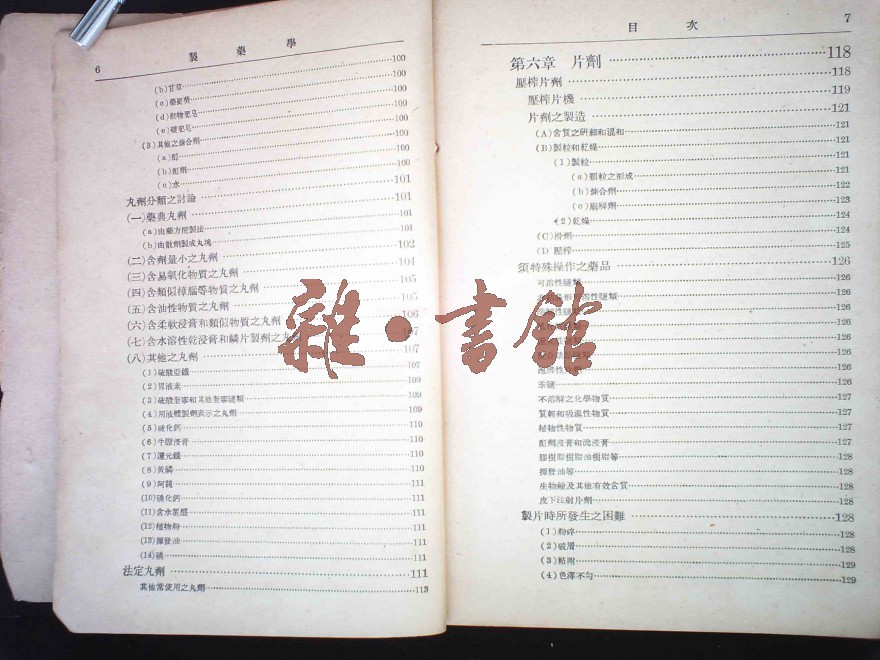 6 製藥學
(b)甘草 100
(c)葡萄糖 100
(d)動物肥皂 100
(e)硬肥皂 100
(3)其他之煉合劑 100
(a)酊 100
(b)酏劑 100
(c)水 101
丸劑分類之討論 101
(一)藥典丸劑 101
(a)由藥方配製法 101
(b)由散劑製成丸塊 101
(二)含劑量小之丸劑 102
(三)含易氧化物質之丸劑 104
(四)含類似樟腦等物質之丸劑 105
(五)含油性物質之丸劑 105
(六)含柔軟浸膏和類似物質之丸劑 106
(七)含水溶性乾浸膏和鱗片製劑之丸劑 107
(八)其他之丸劑 107
(1)硫酸亞鐵 107
(2)胃液素 109
(3)硫酸奎寧和其他奎寧鹽類 109
(4)用液體製劑表示之丸劑 109
(5)硫化鈣 110
(6)牛膽浸膏 110
(7)還元鐵 110
(8)黃磷 110
(9)阿魏 111
(10)碘化鈣 111
(11)含水氯醛 111
(12)植物粉 111
(13)揮發油 111
(14)碘 111
法定丸劑 111
其他常使用之丸劑 113
目次 7
第六章 片劑 118
壓榨片劑 118
壓榨片機 119
片劑之製造 121
(A)含質之研細和混和 121
(B)製粒和乾燥 121
(1)製粒 121
(a)顆粒之形成 121
(b)煉合劑 122
(c)崩解劑 123
(2)乾燥 124
(C)滑劑 124
(D)壓榨 125
須特殊操作之藥品 126
可溶性鹽類 126
溶性鹽類 126
126
126
126
126
126
汞鹽 126
不溶解之化學物質 127
質輕和吸濕性物質 127
植物性物質 127
酊劑浸膏和流浸膏 128
膠樹脂樹脂油樹脂等 128
揮發油等 128
生物鹼及其他有效含質 128
皮下注射片劑 128
製片時所發生之困難 128
(1)粉碎 128
(2)破屑 128
(3)粘附 129
(4)色澤不勻 129
雜·書館